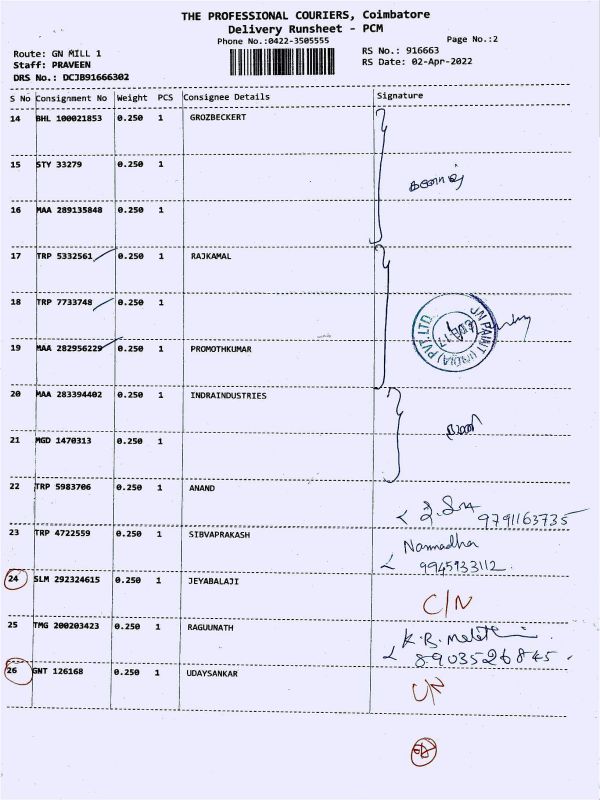 THE PROFESSIONAL COURIERS, Coimbatore
Delivery Runsheet - PCM
Phone No.:0422-3505555
Page No.:2
Route: GN MILL 1
RS No.: 916663
Staff: PRAVEEN
RS Date: 02-Apr-2022
DRS No.: DCJB91666302
S No Consignment No Weight PCS Consignee Details Signature
14 BHL 100021853 0.250 1 GROZBECKERT
15 STY 33279 0.250 1
16 MAA 289135848 0.250 1
17 TRP 5332561 0.250 1 RAJKAMAL
18 TRP 7733748 0.250 1
19 MAA 282956229 0.250 1 PROMOTHKUMAR
20 MAA 283394402 0.250 1 INDRAINDUSTRIES
21 MGD 1470313 0.250 1
22 TRP 5983706 0.250 1 ANAND
9791163735
23 TRP 4722559 0.250 1 SIBVAPRAKASH Narmadha
9945933112
24 SLM 292324615 0.250 1 JEYABALAJI
C/N
25 TMG 200203423 0.250 1 RAGUUNATH
8903526845
26 GNT 126168 0.250 1 UDAYSANKAR
C/N